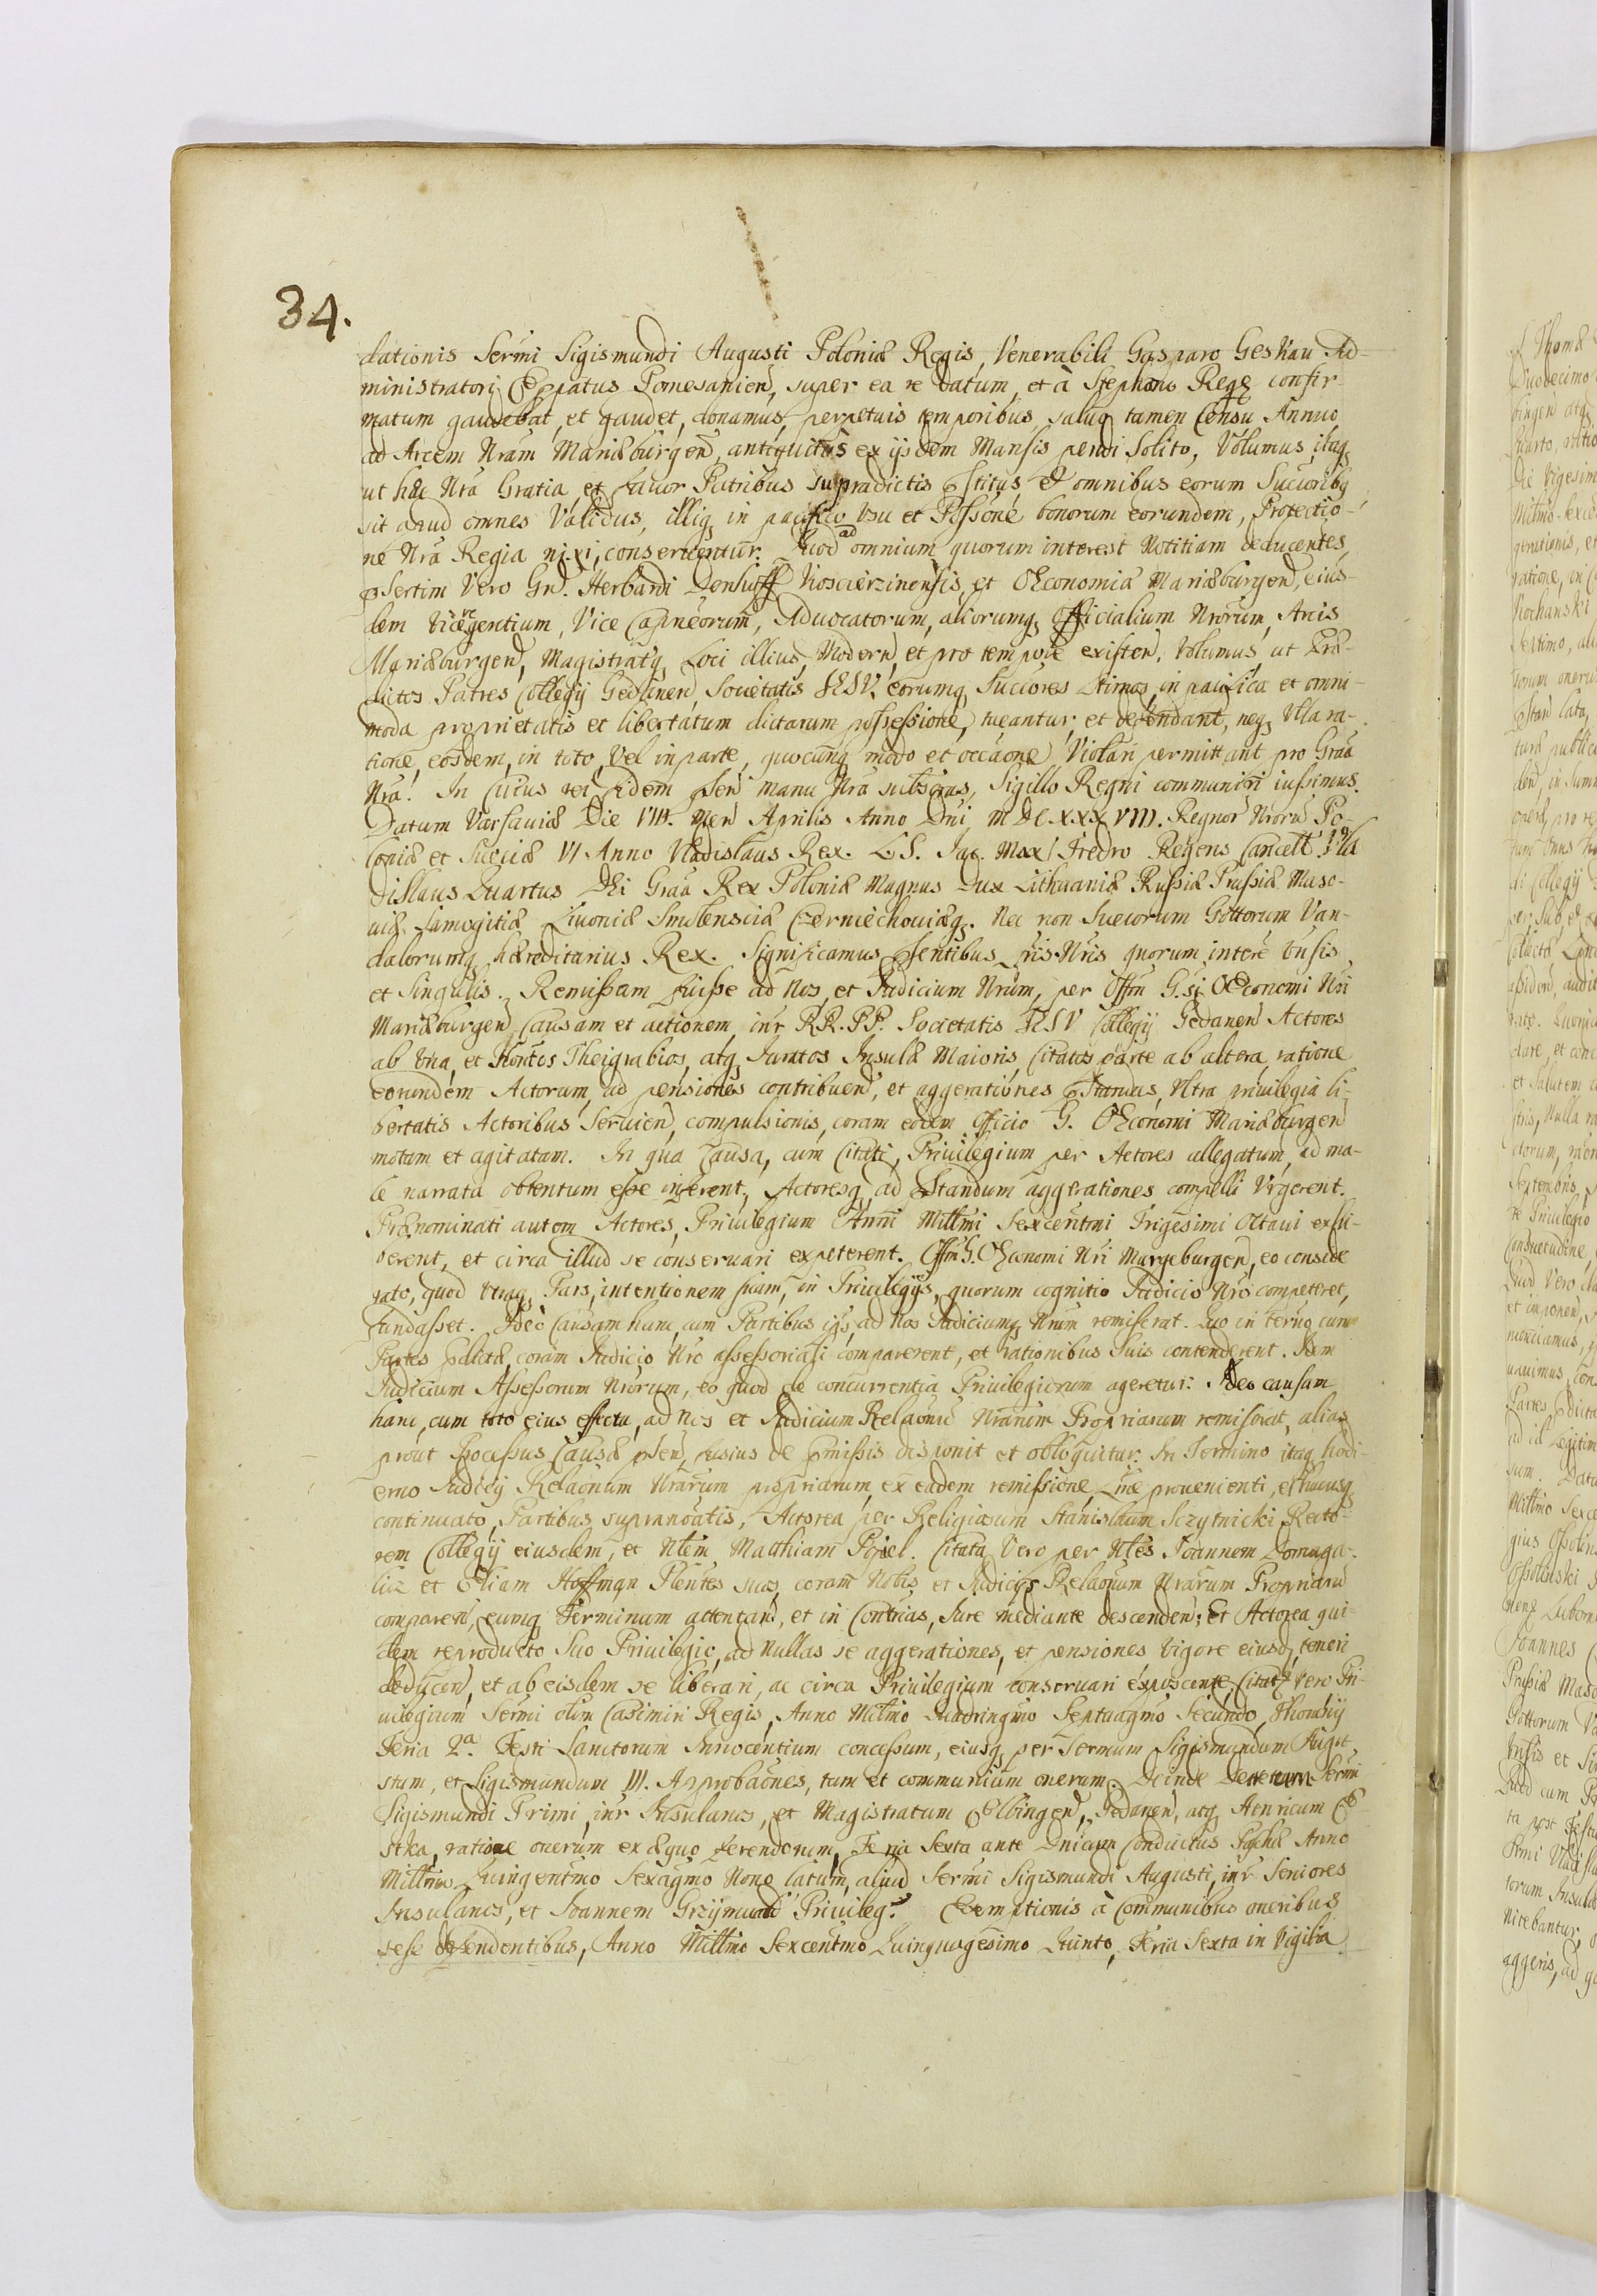 34.
dationis Sermi Sigismundi Augusti Poloniæ Regis, Venerabili Gasparo Geskau Ad-
ministratori Eppatus Pomesanien, super ea re datum, et à Stephano Rege confir-
matum gaudebat, et gaudet, donamus, perpetuis temporibus, saluo tamen Censu Annuo,
ad Arcem Nram Mariæburgen, antiquitus ex ijsdem Mansis pendi Solito, Volumus itaq
ut hæc Nra Gratia et fauor Patribus supradictis et omnibus eorum Sucioribq
sit apud omnes Validus, illiq in pacifico vsu et Possione bonorum eorundem, Protectio-
ne Nra Regia nixi, conseruentur. Quod ad omnium quorum interest Notitiam deducentes,
pSertim Vero Gnd. Herbardi Denhoff Kosciersinensis, et Œconomiæ Mariæburgen, eius-
dem Vicere gentium, Vice Capneorum, Aduocatorum, aliorumq Officialium Nrorum, Arcis
Mariæburgen, Magistratq Loci illius, Modern, et pro tempore existen. Volumus, ut Præ-
dictos Patres Collegij Gedanen, Societatis IESV, eorumq Succores Ltimos, in pacifica et omni-
moda proprietatis et libertatum dictarum possessione, tueantur, et defendant, neq Vlla ra-
tione, eosdem, in toto, Vel in parte, quocunq modo et occaone Violari permittant pro Graa
Nra. In Cuius rei fidem pSen manu Nra subscras, Sigillo Regni communiri iussimus.
Datum Varsauiæ Die VIII. Men Aprilis Anno Dni MDCXXXVIII. Regnor Nroru Po-
loniæ et Sueciæ VI Anno Vladislaus Rex. L.S. Jac. Max. Fredro Regens Cancell. Vla
dislaus Quartus Dei Graa Rex Poloniæ Magnus Dux Lithuaniæ Russiæ Prussiæ Maso-
uiæ Samogitiæ Liuoniæ Smolensciæ Czerniechouiæq. Nec non Suecorum Gottorum Van-
dalorumq hæreditarius Rex. Significamus pSentibus lris Nris quorum intere Vnsis
et Singulis. Remissam fuisse ad Nos, et Iudicium Nrum, per Offm G.si Œconomi Nri
Mariæburgen Causam et actionem inr RR. PP. Societatis IESV Collegij Gedanen Actores
ab Vna, et Hontos Theigrabios, atq Iuratos Insulæ Maioris, Citatos parte ab altera, ratione
eorundem Actorum, ad pensiones contribuen, et aggerationes Vltra priuilegia li-
bertatis Actoribus Seruien, compulsionis, coram eodem Officio G. Œconomi Mariæburgen
motam et agitatam. In qua Causa, cum Citati, Priuilegium per Actores allegatum, ad ma-
le narrata obtentum esse inferent, Actoresq ad Standum aggerationes compelli Vrgerent.
Prænominati autem Actores, Priuilegium Anni Millmi Sexcentmi Trigesimi Octaui exhi-
berent, et circa illud se conseruari expeterent. Offm G. Œconomi Nri Maryæburgen, eo conside
rato, quod Vtraq Pars, intentionem suam, in Priuilegijs, quorum cognitio Iudicio Nro competeret,
fundasset. Ideò Causam hanc, cum Partibus ijs, ad Nos Iudiciumq Nrum remiserat. Quo in Termo cum
Partes pdictæ, coram Iudicio Nro assessoriali comparerent, et rationibus Suis contenderent. Idem
Iudicium Assessorum Nrorum, eo quod de concurrentia Priuilegiorum ageretur. Ideo causam
hanc, cum toto eius effectu, ad Nos et Iudicium Relaonu Nrarum Propriarum remiserat, alias
prout Processus Causæ pSen, fusius de pmissis disponit et obloquitur. In Termino itaq hodi-
erno Iudicij Relaonum Nrarum propriarum, ex eadem remissione Lme prouenienti, et hucusq
continuato, Partibus supranoatis, Actorea per Religiosum Stanislaum Sczytnicki Recto-
rem Collegij eiusdem, et Nlem Matthiam Popiel. Citata Vero per Nles Joannem Domaga-
licz et Eliam Hoffman Plentes suos, coram Nobis et Iudicijs Relaonum Nrarum Propriaru
comparen, eumq Terminum attentan, et in Contrias, Iure mediante descenden: Et Actorea qui-
dem reproducto Suo Priuilegio, ad Nullas se aggerationes, et pensiones Vigore eiusd teneri
deducen, et ab eisdem se liberari, ac circa Priuilegium conseruari exposcente. Citata Vero Pri-
uilegium Sermi olim Casimiri Regis, Anno Millmo Quadringmo Septuagmo Secundo, Thorunij
Feria 2a. Festi Sanctorum Innocentium concessum, eiusq per Sermum Sigismundum Augu-
stum, et Sigismundum III. Approbaones, tum et communium onerum. Deinde Decretum Sermi
Sigismundi Primi, inr Insulanos, et Magistratum Elbingen, Gedanen, atq Henricum
stka, ratione onerum ex æquo ferendorum, Feria Sexta ante Dnicam Conductus Paschæ Anno
Millmo Quingentmo Sexagmo Nono latum, aliud Sermi Sigismundi Augusti, inr Seniores
Insulanos, et Ioannem Grzymuald Priuileg. Exemptionis à Communibus oneribus
sese defendentibus, Anno Millmo Sexcentmo Quinquagesimo Quinto, Feria Sexta in Vigilia